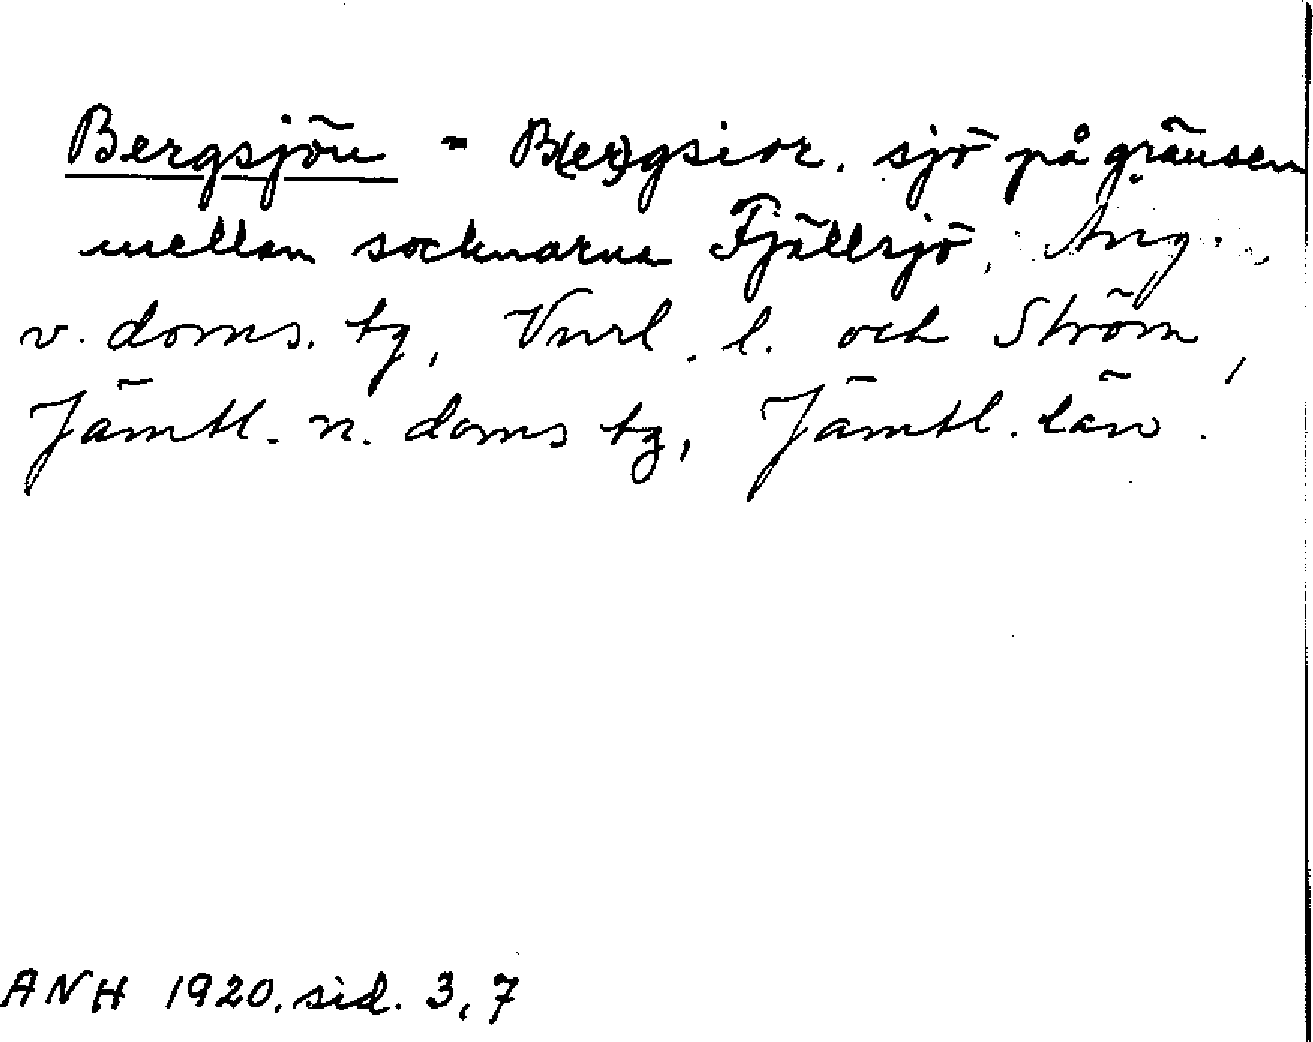 Bergsjön - B(er)gsior. sjö på gränsen
mellan socknarna Fjällsjö, Ång.,
v. doms. tg, Vnrl. l. och Ström,
Jämtl. n. doms tg, Jämtl. län.
ANH 1920. sid. 3, 7